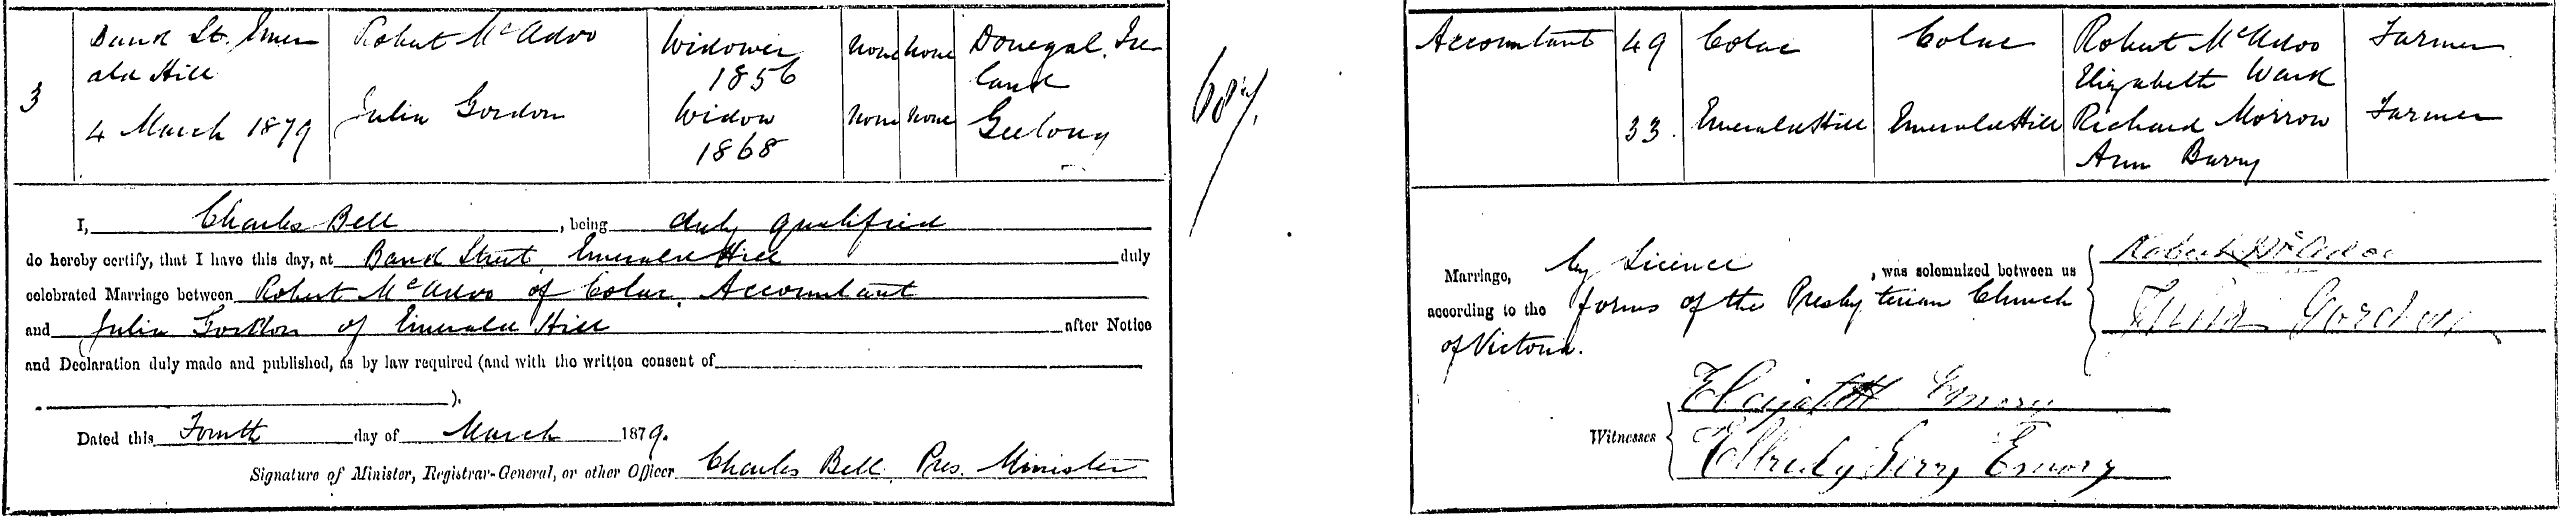 3
Band St. Emer
ald Hill
4 March 1879
Robert McAdoo
Julia Gordon
Widower
1856
Widow
1868
None None
None None
Donegal, Ire
land
Geelong
Accountant
49
33.
Colac
Emerald Hill
Colac
Emerald Hill
Robert McAdoo
Elizabeth Wark
Richard Morrow
Ann Barry
Farmer
Farmer
I, Charles Bell, being duly qualified
do hereby certify, that I have this day, at Band Street, Emerald Hill duly
celebrated Marriage between Robert McAdoo of Colac, Accountant
and Julia Gordon of Emerald Hill after Notice
and Declaration duly made and published, as by law required (and with the written consent of
).
Dated this Fourth day of March 1879.
Signature of Minister, Registrar-General, or other Officer Charles Bell, Pres. Minister
Marriage, by Licence, was solemnized between us
according to the forms of the Presbyterian Church
of Victoria.
Robert McAdoo
Julia Gordon
Witnesses
Elizabeth Emory
Emory